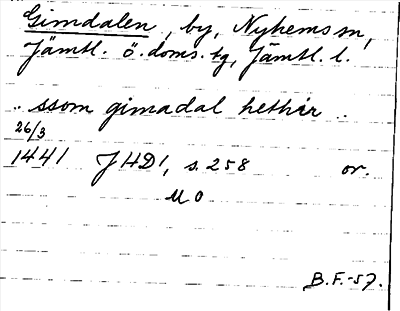 Gimdalen, by, Nyhems sn,
Jämtl. ö. doms. tg, Jämtl. l.
.. ssom gimadal hethir ..
26/3
1441 JHD1, s. 258 or.
U O
B.F.-57.